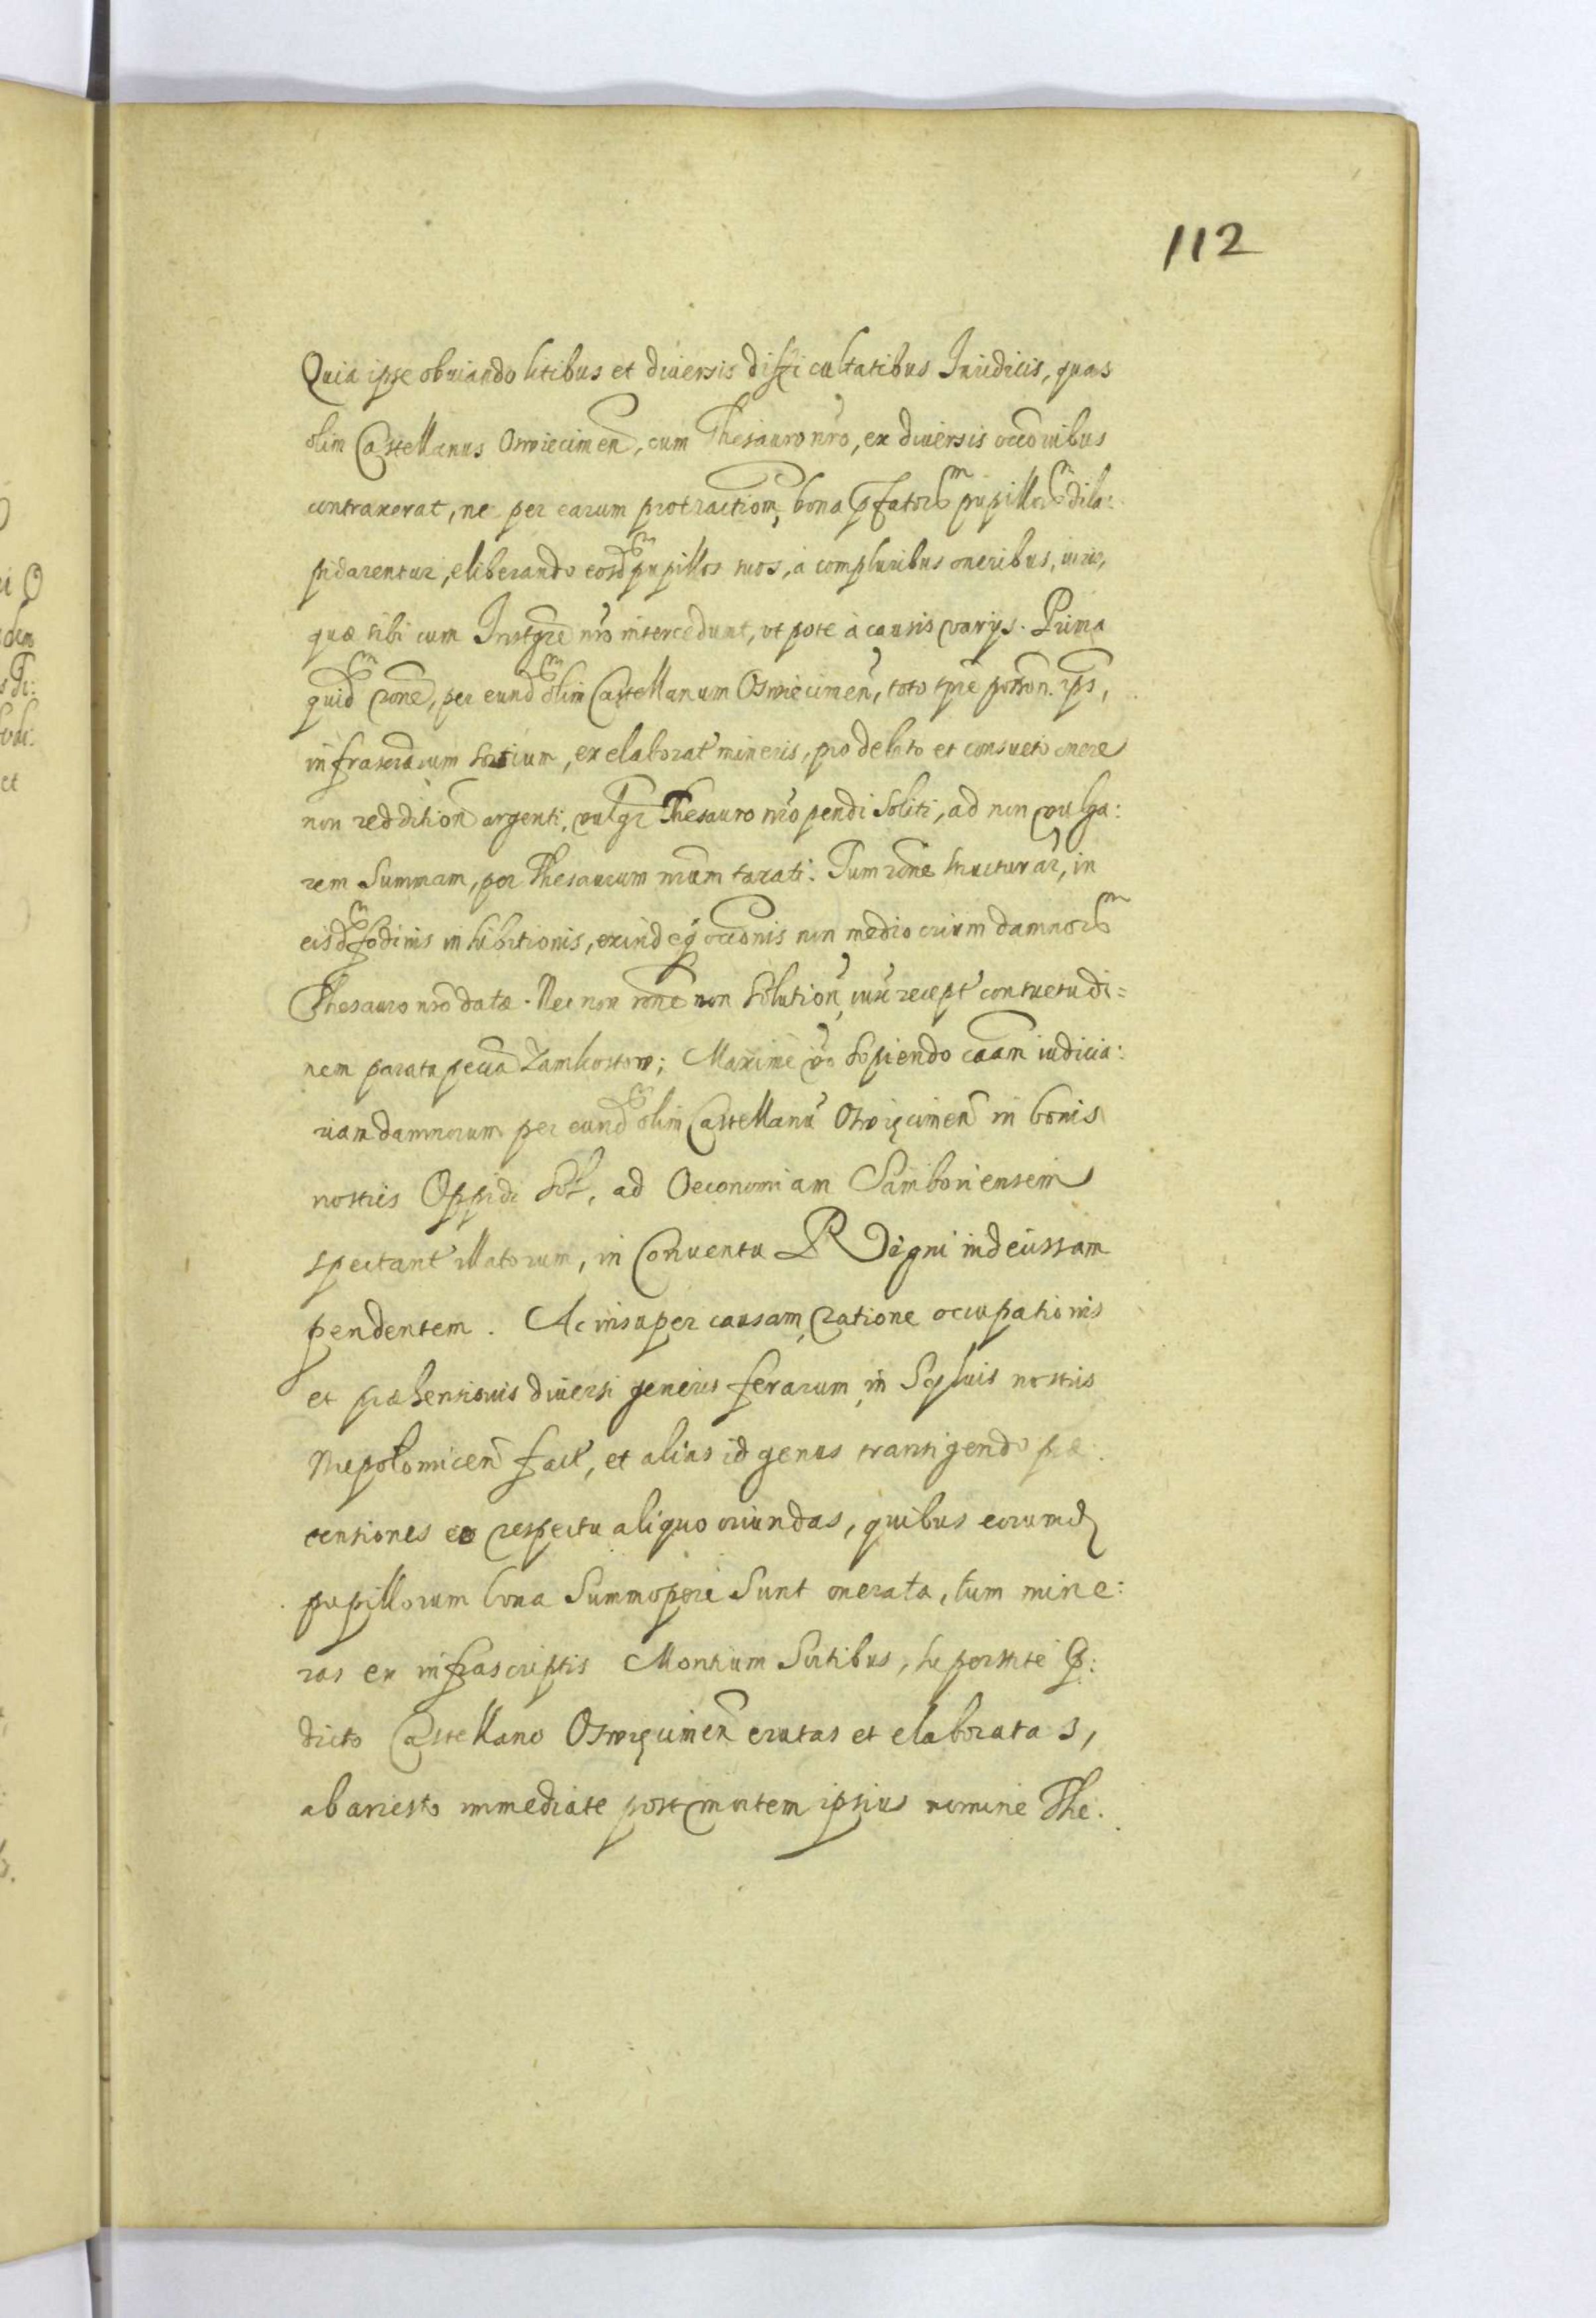 112
Quia ipse obuiando litibus et diuersis difficultatibus Iuridicis, quas
olim Castellanus Oswiecimen̄, cum Thesauro nr̄o, ex diuersis occōnibus
contraxerat, ne per earum protractiom̄, bona p̄fator̄m pupillor̄m dila:
pidarentur, eliberando eosdm pupillos suos, à compluribus oneribus,
quæ sibi cum nr̄o intercedunt, ut pote à causis varijs. Prima
quidm rōne, per eundm olim Castellanum Oswiecimen̄, toto tpr̄e
infrascr̄arum sortium, ex elaborat' mineris, pro debito et consueto onere
non reddition̄ argenti, vulgr̄ Thesauro nr̄o pendi soliti, ad non vulga:
rem Summam, per Thesaurum nr̄um taxati. Tum rōne structurar̄, in
eisdm fodinis inhibitionis, exindeq; occōnis non mediocrium damnor̄m
Thesauro nr̄o datæ. Nec non rōne non Solution̄, recept' consuetudi=
nem parata pecūa Zamkostow; Maxime v̄o Sopiendo caām iudicia:
riam damnorum per eundm olim Castellanū Oswięcimen̄ in bonis
nostris Oppidi Sol, ad Oeconomiam Samboriensem
spectant' illatorum, in Conuentu Regni indecissam
pendentem. Ac insuper causam, ratione occupationis
et præhensionis diuersi generis ferarum, in Sylvis nostris
Niepołomicen̄ fact', et alias id genus transigendo præ:
tensiones eo respectu aliquo oriundas, quibus eorumd
pupillorum bona Summopere Sunt onerata, tum mine:
ras ex infrascriptis Montium Sortibus, superstite P:
dicto Castellano Oswięcimen̄ erutas et elaboratas,
ab arresto immediate post mortem ipsius nomine The: